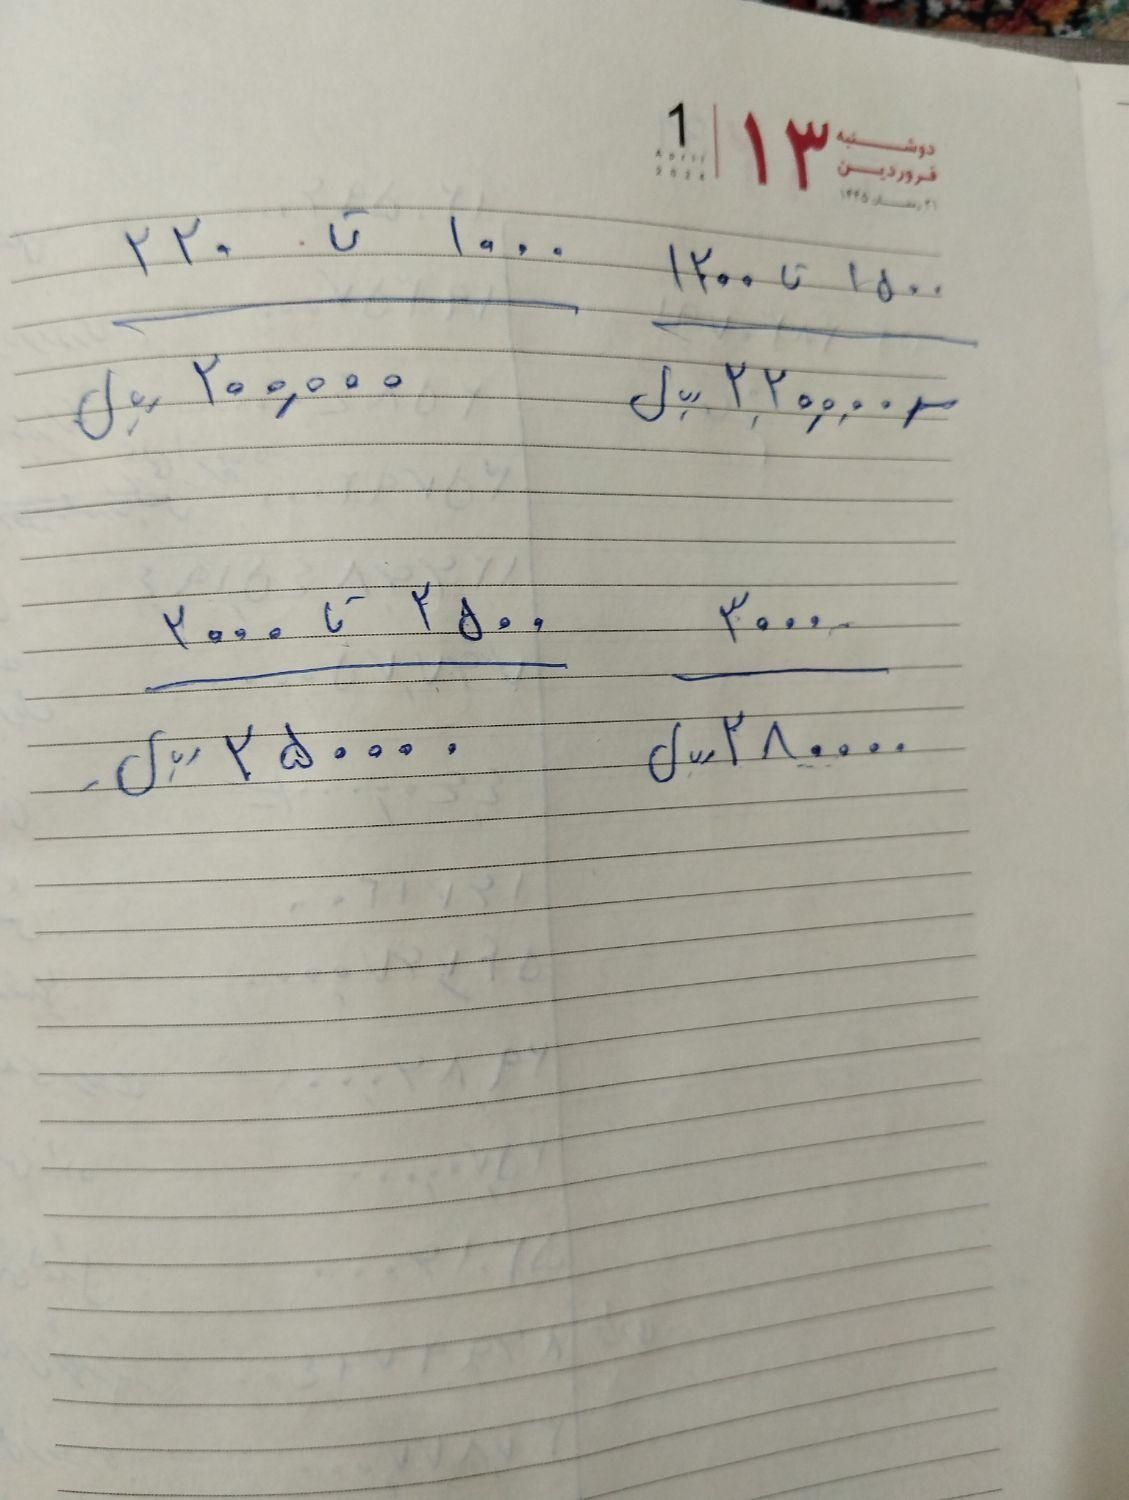 دوشنبه
فروردین
۱۳
1
April
2024
۲۱ رمضان ۱۴۴۵
۱۵۰۰ تا ۱۲۰۰
۲,۲۰۰,۰۰۰ ریال
۱۰۰۰ تا ۲۲۰
۲۰۰,۰۰۰ ریال
۳۰۰۰
۲۸۰۰۰۰ ریال
۲۵۰۰ تا ۲۰۰۰
۲۵۰۰۰۰ ریال